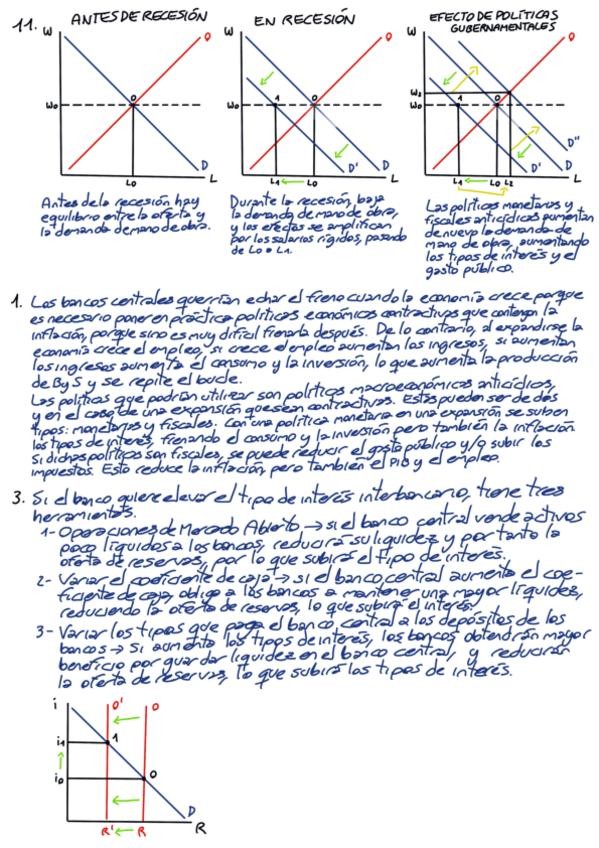 11. ANTES DE RECESIÓN
EN RECESIÓN
EFECTO DE POLÍTICAS
GUBERNAMENTALES
W O
W₀ 0
L₀ D L
W O
W₀ 1 0
L₁ L₀ D' D L
W O
W₂
W₀ 1 0
L₁ L₀ L₂ D' D D'' L
Antes de la recesión hay
equilibrio entre la oferta y
la demanda de mano de obra.
Durante la recesión, baja
la demanda de mano de obra,
y los efectos se amplifican
por los salarios rígidos, pasando
de L₀ a L₁.
Las políticas monetarias y
fiscales anticíclicas aumentan
de nuevo la demanda de
mano de obra, aumentando
los tipos de interés y el
gasto público.
1. Los bancos centrales querrían echar el freno cuando la economía crece porque
es necesario poner en práctica políticas económicas contractivas que contengan la
inflación, porque sino es muy difícil frenarla después. De lo contrario, al expandirse la
economía crece el empleo, si crece el empleo aumentan los ingresos, si aumentan
los ingresos aumenta el consumo y la inversión, lo que aumenta la producción
de B y S y se repite el bucle.
Las políticas que podrían utilizar son políticas macroeconómicas anticíclicas,
y en el caso de una expansión que sean contractivas. Estas pueden ser de dos
tipos: monetarias y fiscales. Con una política monetaria en una expansión se suben
los tipos de interés, frenando el consumo y la inversión pero también la inflación.
Si dichas políticas son fiscales, se puede reducir el gasto público y/o subir los
impuestos. Esto reduce la inflación, pero también el PIB y el empleo.
3. Si el banco quiere elevar el tipo de interés interbancario, tiene tres
herramientas.
1- Operaciones de Mercado Abierto → si el banco central vende activos
poco líquidos a los bancos, reducirá su liquidez y por tanto la
oferta de reservas, por lo que subirá el tipo de interés.
2- Variar el coeficiente de caja → si el banco central aumenta el coe-
ficiente de caja, obliga a los bancos a mantener una mayor liquidez,
reduciendo la oferta de reservas, lo que subirá el interés.
3- Variar los tipos que paga el banco central a los depósitos de los
bancos → si aumenta los tipos de interés, los bancos obtendrán mayor
beneficio por guardar liquidez en el banco central, y reducirán
la oferta de reservas, lo que subirá los tipos de interés.
i O' O
i₁ 1
i₀ 0
D
R' ← R R